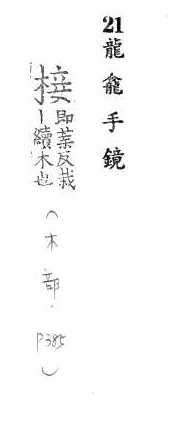 21龍龕手鏡
椄
即葉反栽
丨續木也
（木部．P385）